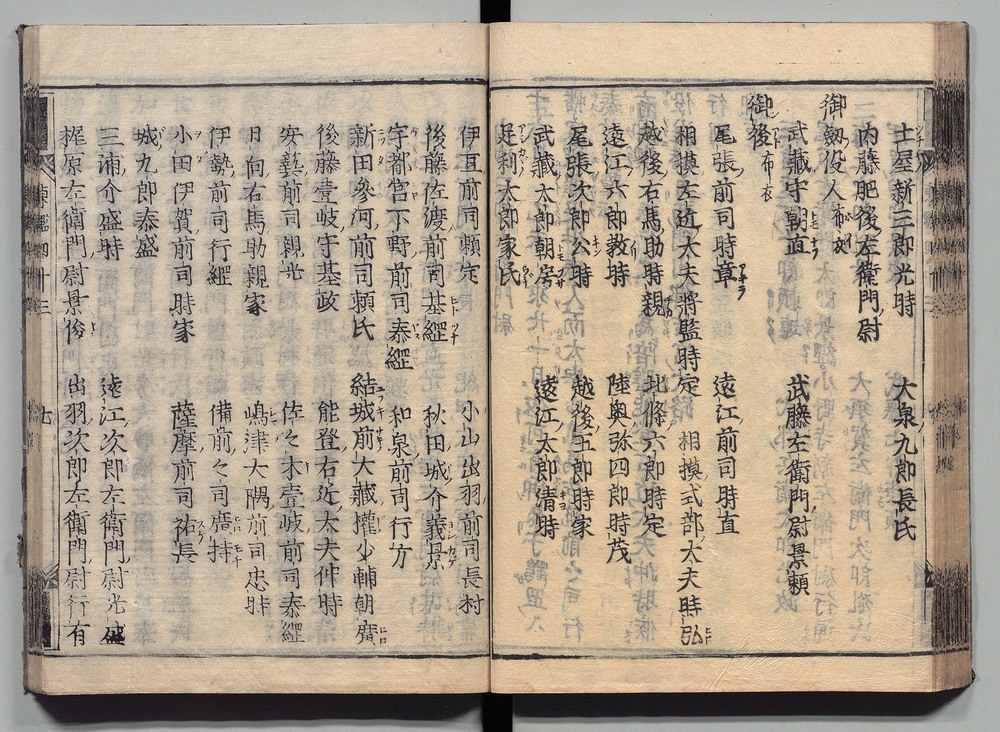 土屋新三郎光時 大泉九郎長氏
内藤肥後左衛門尉
御劔役人布衣
武藏守朝直 武藤左衛門尉景頼
御後布衣
尾張前司時章 遠江前司時直
相摸左近大夫將監時定 相摸式部大夫時弘
越後右馬助時親 北條六郎時定
遠江六郎教時 陸奥弥四郎時茂
尾張次郎公時 越後五郎時家
武藏太郎朝房 遠江太郎清時
足利太郎家氏
伊豆前司頼定 小山出羽前司長村
後藤佐渡前司基綱 秋田城介義景
宇都宮下野前司泰綱 和泉前司行方
新田參河前司頼氏 結城前大藏權少輔朝廣
後藤壹岐守基政 能登右近大夫仲時
安藝前司親光 佐々木壹岐前司泰綱
日向右馬助親家 嶋津大隅前司忠時
伊勢前司行綱 備前々司廣持
小田伊賀前司時家 薩摩前司祐長
城九郎泰盛
三浦介盛時 遠江次郎左衛門尉光盛
梶原左衛門尉景俊 出羽次郎左衛門尉行有